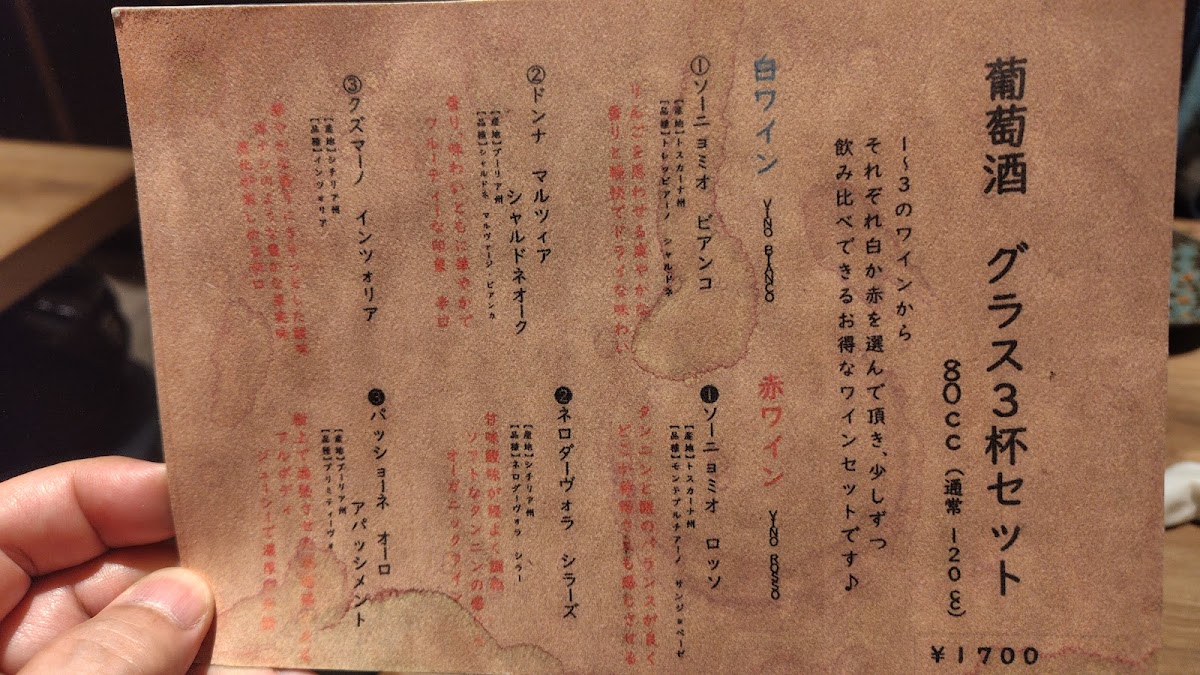 葡萄酒 グラス3杯セット
80cc(通常120cc)
¥1700
1~3のワインから
それぞれ白か赤を選んで頂き、少しずつ
飲み比べできるお得なワインセットです♪
白ワイン VINO BIANCO
①ソーニョミオ ビアンコ
【産地】トスカーナ州
【品種】トレッビアーノ シャルドネ
りんごを思わせる爽やかな
香りと軽快でドライな味わい
②ドンナ マルツィア
シャルドネオーク
【産地】プーリア州
【品種】シャルドネ マルヴァージ・ビアンカ
香り、味わいともに華やかで
フルーティーな印象 辛口
③クズマーノ インツォリア
【産地】シチリア州
【品種】インツォリア
赤ワイン VINO ROSSO
❶ソーニョミオ ロッソ
【産地】トスカーナ州
【品種】モンテプルチアーノ サンジョベーゼ
タンニンと酸のバランスが良く
❷ネロダーヴォラ シラーズ
【産地】シチリア州
【品種】ネロダヴォラ シラー
甘味酸味が程よく調和
ソフトなタンニンの
オーガニックワイン
❸パッショーネ オーロ
アパッシメント
【産地】プーリア州
【品種】プリミティーヴォ